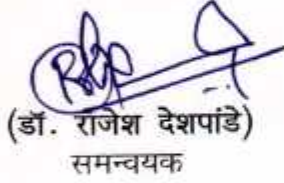 (डॉ. राजेश देशपांडे)
समन्वयक